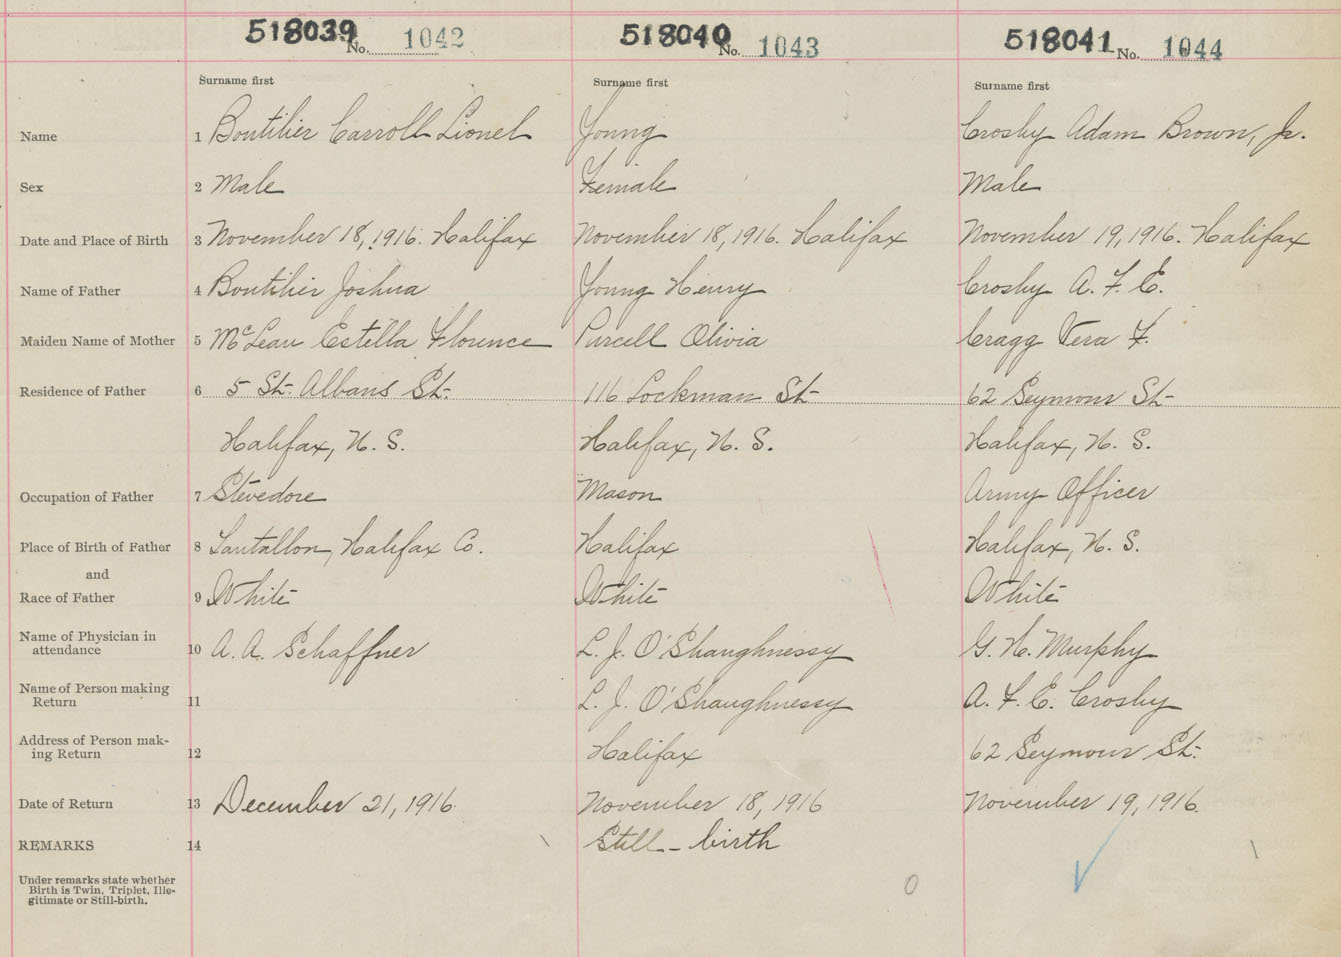 518039 No. 1042 518040 No. 1043 518041 No. 1044
Surname first Surname first Surname first
Name 1 Boutilier Carroll Lionel Young Crosby Adam Brown, Jr.
Sex 2 Male Female Male
Date and Place of Birth 3 November 18, 1916. Halifax November 18, 1916. Halifax November 19, 1916. Halifax
Name of Father 4 Boutilier Joshua Young Henry Crosby A. F. E.
Maiden Name of Mother 5 McLean Estella Florence Purcell Olivia Cragg Vera F.
Residence of Father 6 5 St. Albans St. 116 Lockman St 62 Seymour St
Halifax, N. S. Halifax, N. S. Halifax, N. S.
Occupation of Father 7 Stevedore Mason Army Officer
Place of Birth of Father 8 Tantallon, Halifax Co. Halifax Halifax, N. S.
and
Race of Father 9 White White White
Name of Physician in
attendance 10 A. A. Schaffner L. J. O'Shaughnessy G. H. Murphy
Name of Person making
Return 11 L. J. O'Shaughnessy A. F. E. Crosby
Address of Person mak-
ing Return 12 Halifax 62 Seymour St.
Date of Return 13 December 21, 1916. November 18, 1916 November 19, 1916.
REMARKS 14 Still-birth
Under remarks state whether
Birth is Twin, Triplet, Ille-
gitimate or Still-birth.
0